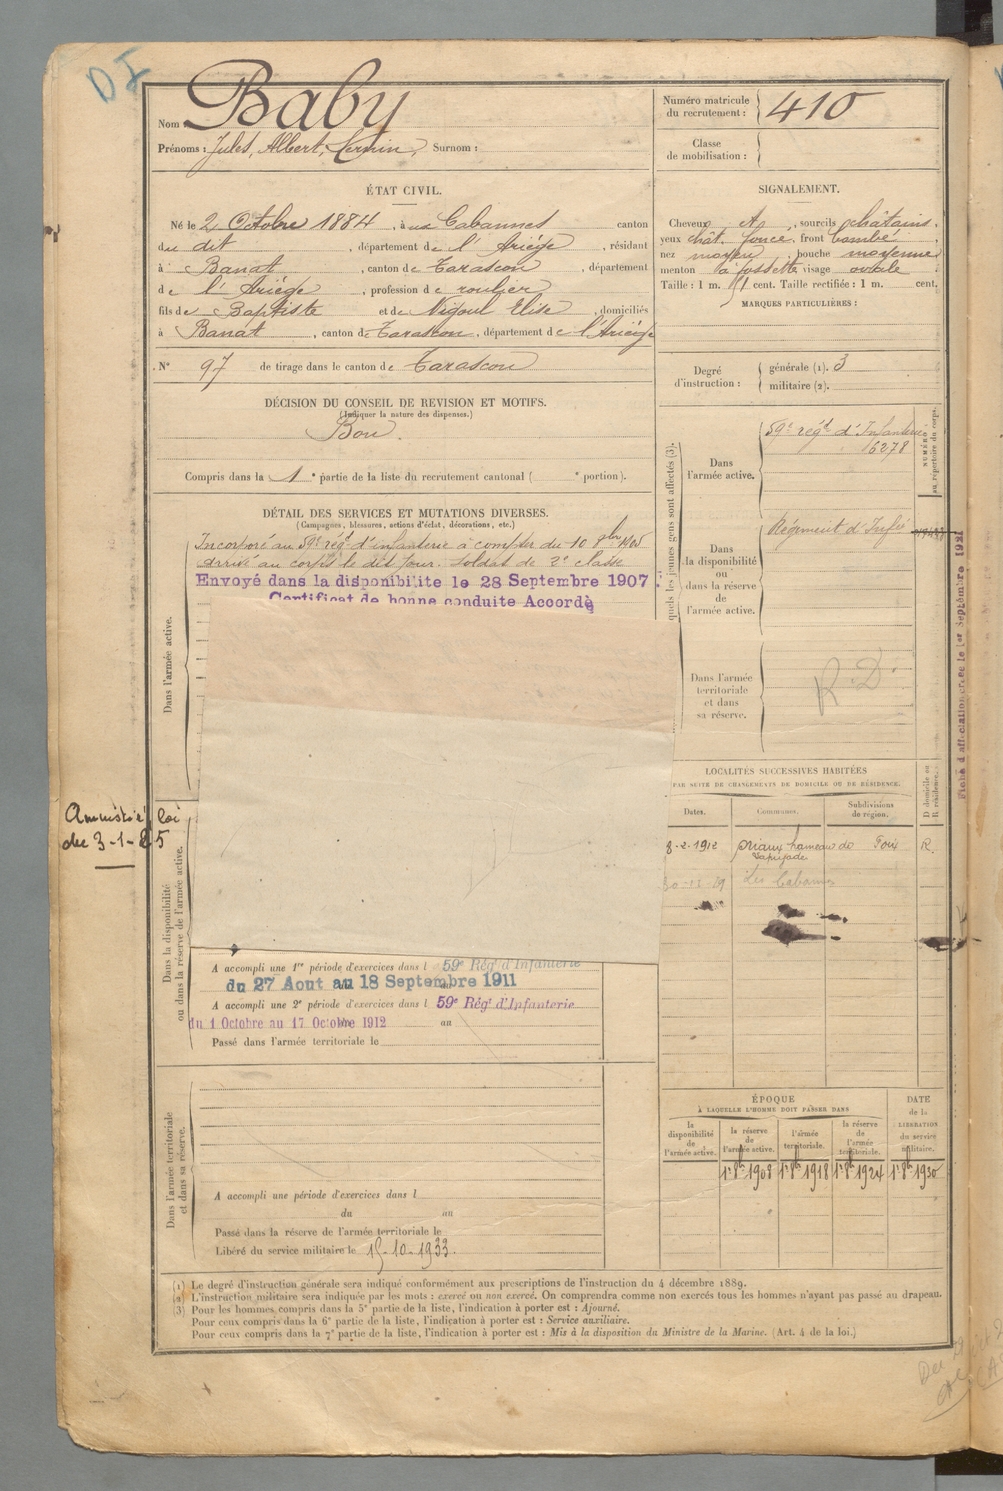 D I
Nom Baby
Prénoms : Jules, Albert, Sernin, Surnom :
Numéro matricule du recrutement : 410
Classe de mobilisation :
ÉTAT CIVIL.
Né le 2 Octobre 1884, à ux Cabannes canton
du dit, département de l'Ariège, résidant
à Banat, canton de Tarascon, département
de l'Ariège, profession de roulier
fils de Baptiste et de Nigoul Elise, domiciliés
à Banat, canton de Tarascon, département de l'Ariège
N° 97 de tirage dans le canton de Tarascon
SIGNALEMENT.
Cheveux, sourcils châtains.
yeux chât. foncé, front bombé,
nez moyen, bouche moyenne,
menton à fossette visage ovale
Taille : 1 m. cent. Taille rectifiée : 1 m. cent.
MARQUES PARTICULIÈRES :
Degré d'instruction :
générale (1). 3
militaire (2).
DÉCISION DU CONSEIL DE REVISION ET MOTIFS.
(Indiquer la nature des dispenses.)
Bon.
Compris dans la 1e partie de la liste du recrutement cantonal ( e portion).
DÉTAIL DES SERVICES ET MUTATIONS DIVERSES.
(Campagnes, blessures, actions d'éclat, décorations, etc.)
Incorporé au 59e régt d'infanterie à compter du 10 8bre 1905
Arrivé au corps le dit jour. Soldat de 2e classe
Envoyé dans la disponibilité le 28 Septembre 1907
Certificat de bonne conduite Accordé
Dans l'armée active.
Amnistié loi
du 3-1-25
Dans la disponibilité
ou dans la réserve de l'armée active.
A accompli une 1re période d'exercices dans l 59e Régt d'Infanterie
du 27 Aout au 18 Septembre 1911
A accompli une 2e période d'exercices dans l 59e Régt d'Infanterie
du 1 Octobre au 17 Octobre 1912 au
Passé dans l'armée territoriale le
Dans l'armée territoriale
et dans sa réserve.
A accompli une période d'exercices dans l
du au
Passé dans la réserve de l'armée territoriale le
Libéré du service militaire le 15-10-1933.
quels les jeunes gens sont affectés (3).
NUMÉRO
au répertoire du corps.
Dans
l'armée active.
59e régt d'Infanterie
6278
Dans
la disponibilité
ou
dans la réserve
de
l'armée active.
Régiment d'Infie
Dans l'armée
territoriale
et dans
sa réserve.
R. D.
Fiche d'affectation créée le 1er Septembre 1921
LOCALITÉS SUCCESSIVES HABITÉES
PAR SUITE DE CHANGEMENTS DE DOMICILE OU DE RÉSIDENCE.
Dates. Communes. Subdivisions de région. D domicile ou R résidence.
8-2-1912 hameau de Foix R.
Les Cabannes
ÉPOQUE
À LAQUELLE L'HOMME DOIT PASSER DANS
DATE
de la
LIBÉRATION
du service
militaire.
la disponibilité de l'armée active.
la réserve de l'armée active.
l'armée territoriale.
la réserve de l'armée territoriale.
1r 8bre 1908 1r 8bre 1918 1r 8bre 1924 1r 8bre 1930
(1) Le degré d'instruction générale sera indiqué conformément aux prescriptions de l'instruction du 4 décembre 1889.
(2) L'instruction militaire sera indiquée par les mots : exercé ou non exercé. On comprendra comme non exercés tous les hommes n'ayant pas passé au drapeau.
(3) Pour les hommes compris dans la 5e partie de la liste, l'indication à porter est : Ajourné.
Pour ceux compris dans la 6e partie de la liste, l'indication à porter est : Service auxiliaire.
Pour ceux compris dans la 7e partie de la liste, l'indication à porter est : Mis à la disposition du Ministre de la Marine. (Art. 4 de la loi.)